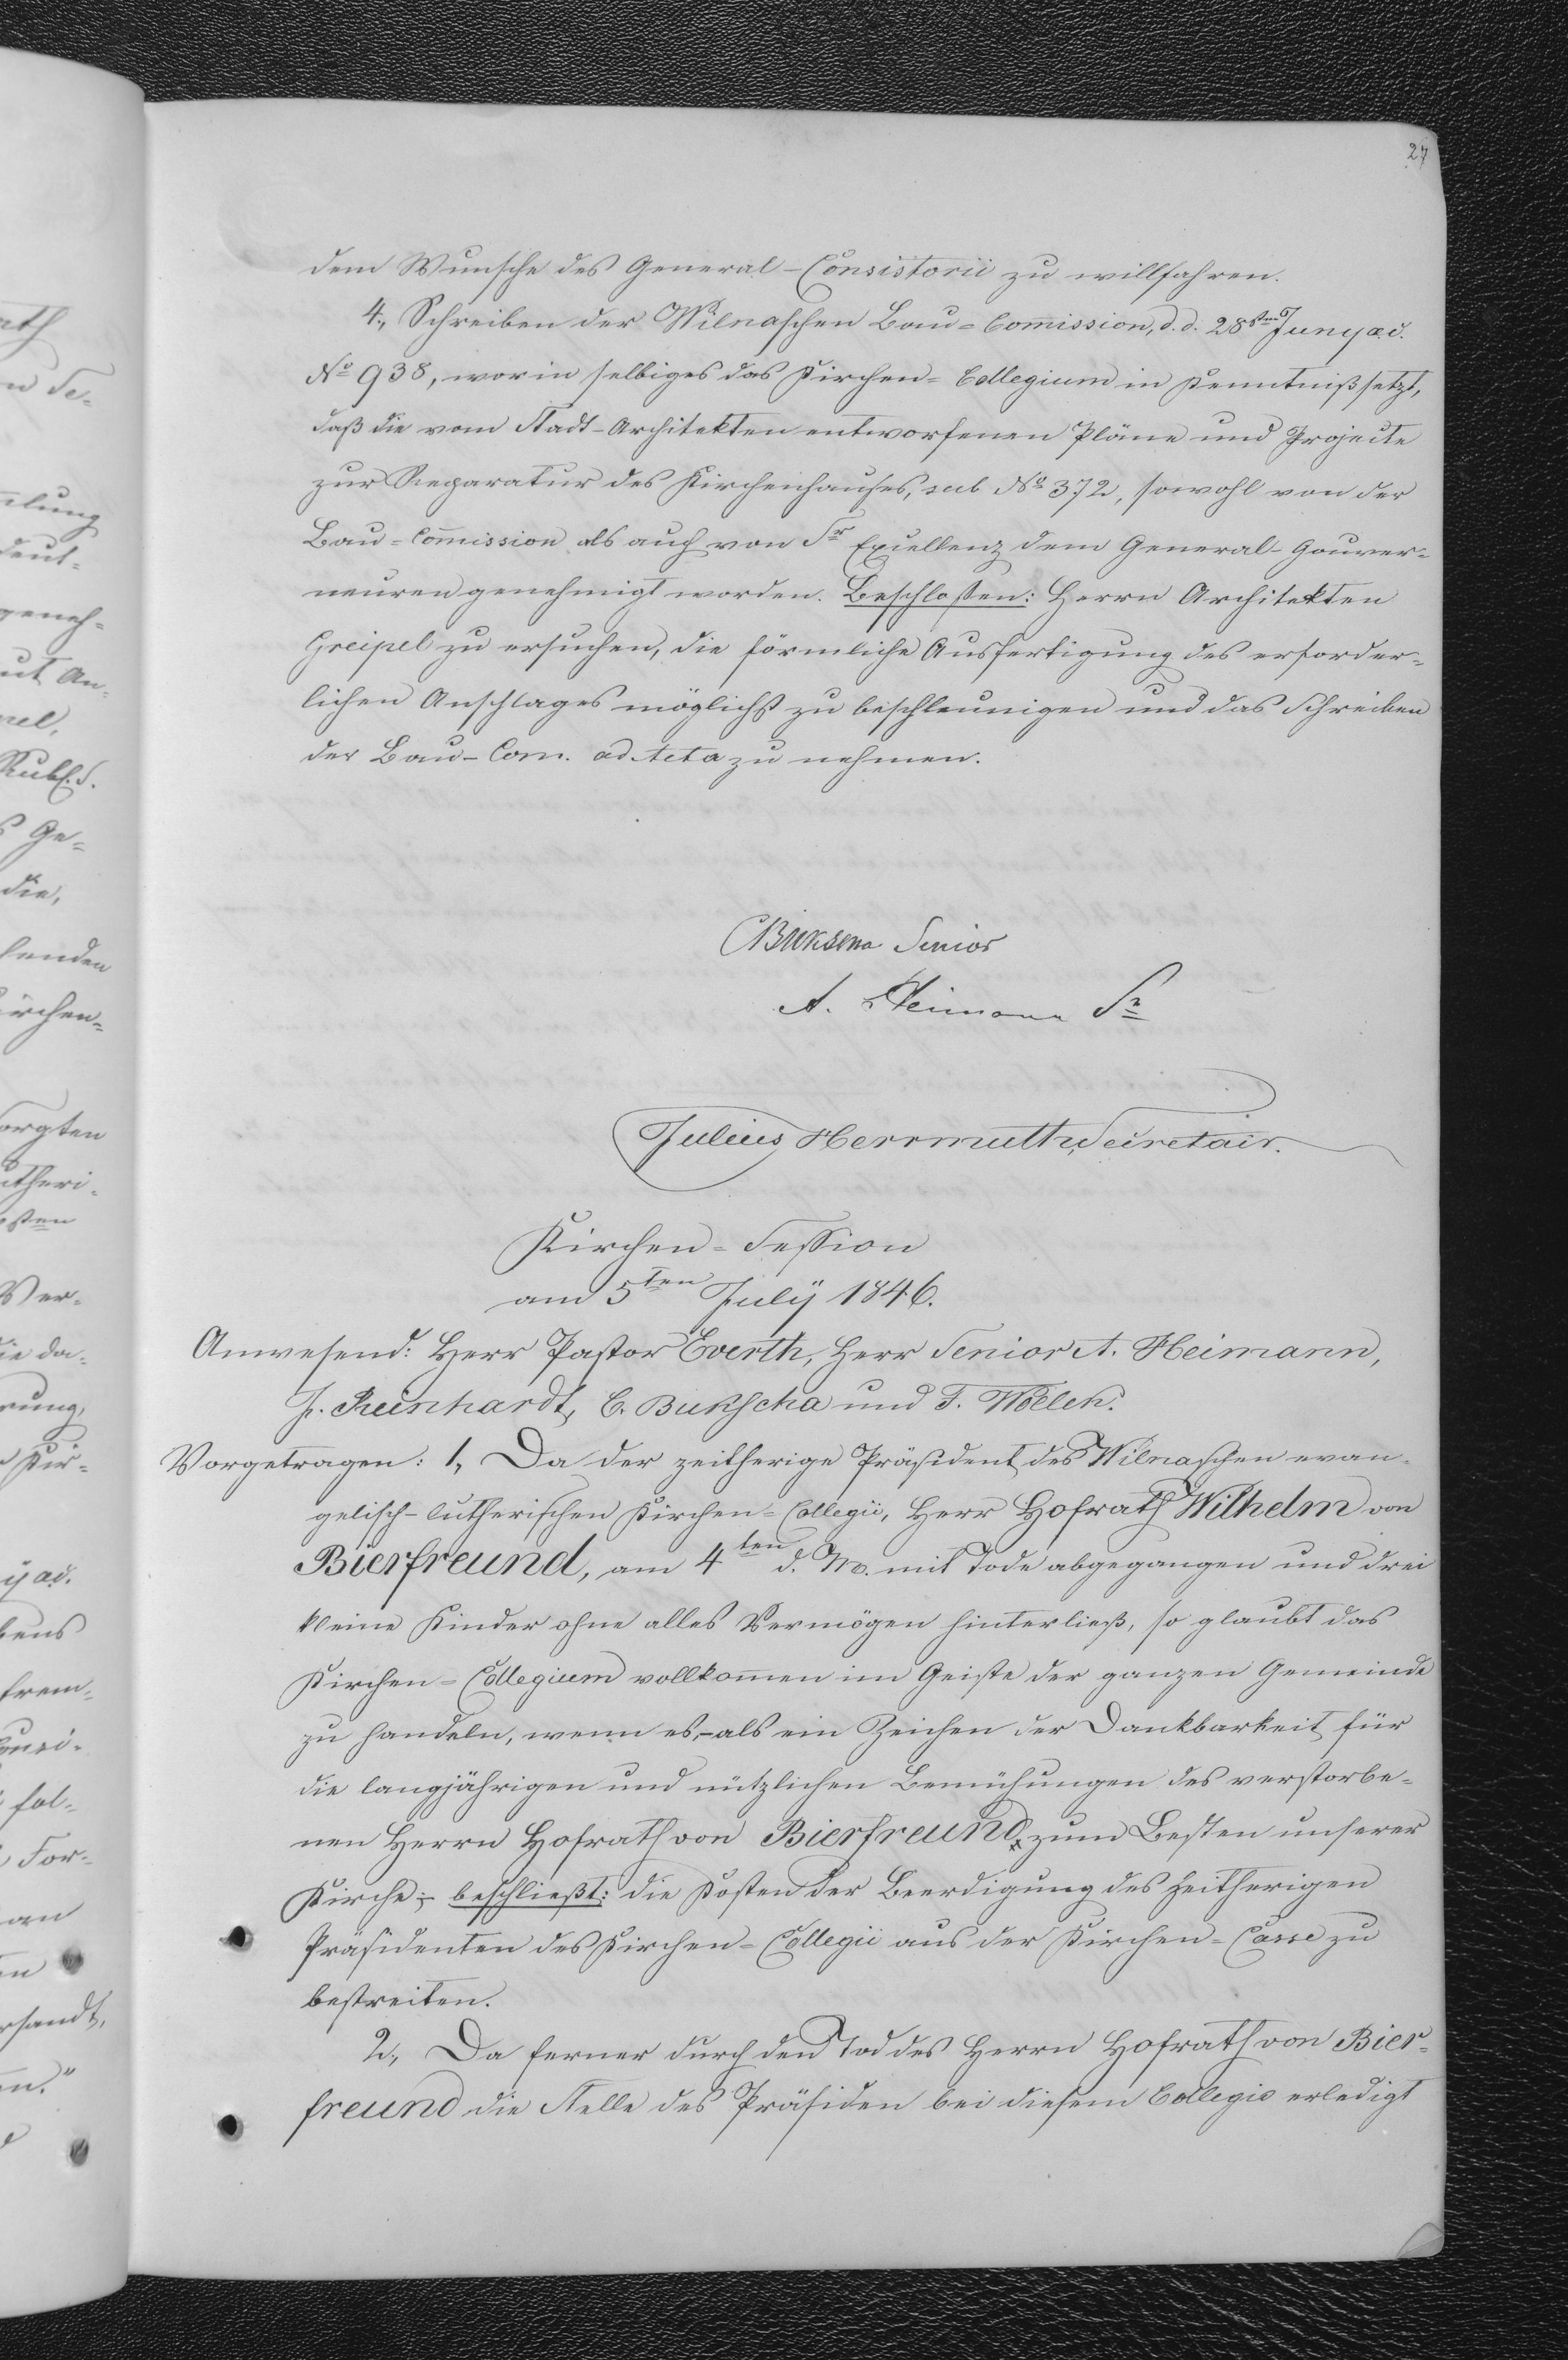 27
dem Wunsche des General-Consistorii zu willfahren.
4., Schreiben der Wilnaschen Bau-Com̄ission, d. d. 28sten Juny a. c.
No 938, worin selbiges das Kirchen-Collegium in Kenntniß setzt,
daß die vom Stadt-Architekten entworfenen Pläne und Projecte
zur Reparatur des Kirchenhauses, sub No 372, sowohl von der
Bau-Com̄ission als auch von Sr Excellenz dem General-Gouver-
neuren genehmigt worden. Beschlossen: Herrn Architekten
Greipel zu ersuchen, die förmliche Ausfertigung des erforder-
lichen Anschlages möglichst zu beschleunigen und das Schreiben
der Bau-Com. ad Acta zu nehmen.
Senior
A. Heimann Sr
Julius Herrmuth, Secretair.
Kirchen-Session
am 5ten July 1846.
Anwesend: Herr Pastor Everth, Herr Senior A. Heimann,
J. Reinhardt, C. Bukscha und F. Woelck.
Vorgetragen: 1., Da der zeitherige Präsident des Wilnaschen evan-
gelisch-lutherischen Kirchen-Collegii, Herr Hofrath Wilhelm von
Bierfreund, am 4ten d. M. mit Tode abgegangen und drei
kleine Kinder ohne alles Vermögen hinterließ, so glaubt das
Kirchen-Collegium vollkom̄en im Geiste der ganzen Gemeinde
zu handeln, wenn es,- als ein Zeichen der Dankbarkeit für
die langjährigen und nützlichen Bemühungen des verstorbe-
nen Herrn Hofrath von Bierfreund zum Besten unserer
Kirche,- beschließt: die Kosten der Beerdigung des zeitherigen
Präsidenten des Kirchen-Collegii aus der Kirchen-Casse zu
bestreiten.
2., Da ferner durch den Tod des Herrn Hofrath von Bier-
freund die Stelle des Präsiden bei diesem Collegio erledigt